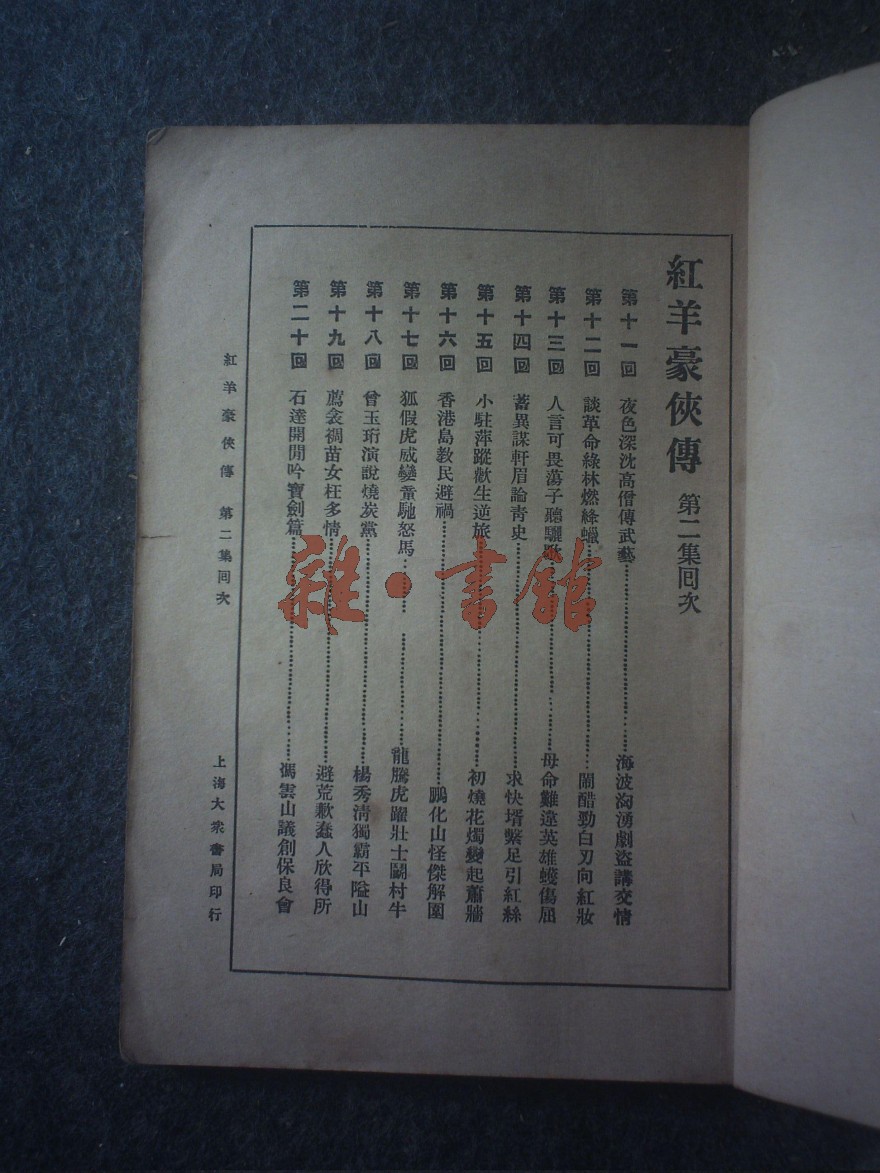 紅羊豪俠傳 第二集回次
第十一回 夜色深沈高僧傳武藝……海波洶湧劇盜講交情
第十二回 談革命綠林燃絳蠟……鬧醋勁白刃向紅妝
第十三回 人言可畏蕩子聽驪歌……母命難違英雄蠖傷屈
第十四回 蓄異謀軒眉論靑史……求快壻繫足引紅絲
第十五回 小駐萍蹤歡生逆旅……初燒花燭變起蕭牆
第十六回 香港島教民避禍……鵬化山怪傑解圍
第十七回 狐假虎威孌童馳怒馬……龍騰虎躍壯士鬭村牛
第十八回 曾玉珩演說燒炭黨……楊秀清獨霸平隘山
第十九回 薦衾裯苗女枉多情……避荒歉蠢人欣得所
第二十回 石達開閒吟寶劍篇……馮雲山議創保良會
紅羊豪俠傳 第二集回次
上海大衆書局印行
雜·書館